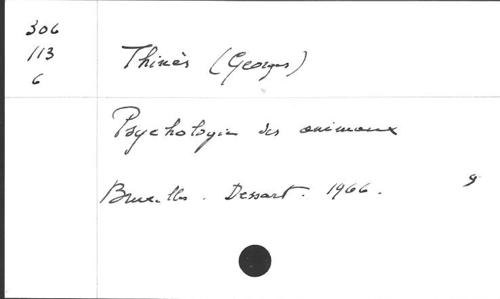 306
113
6
Thinès (Georges)
Psychologie des animaux
Bruxelles. Dessart. 1966.
g